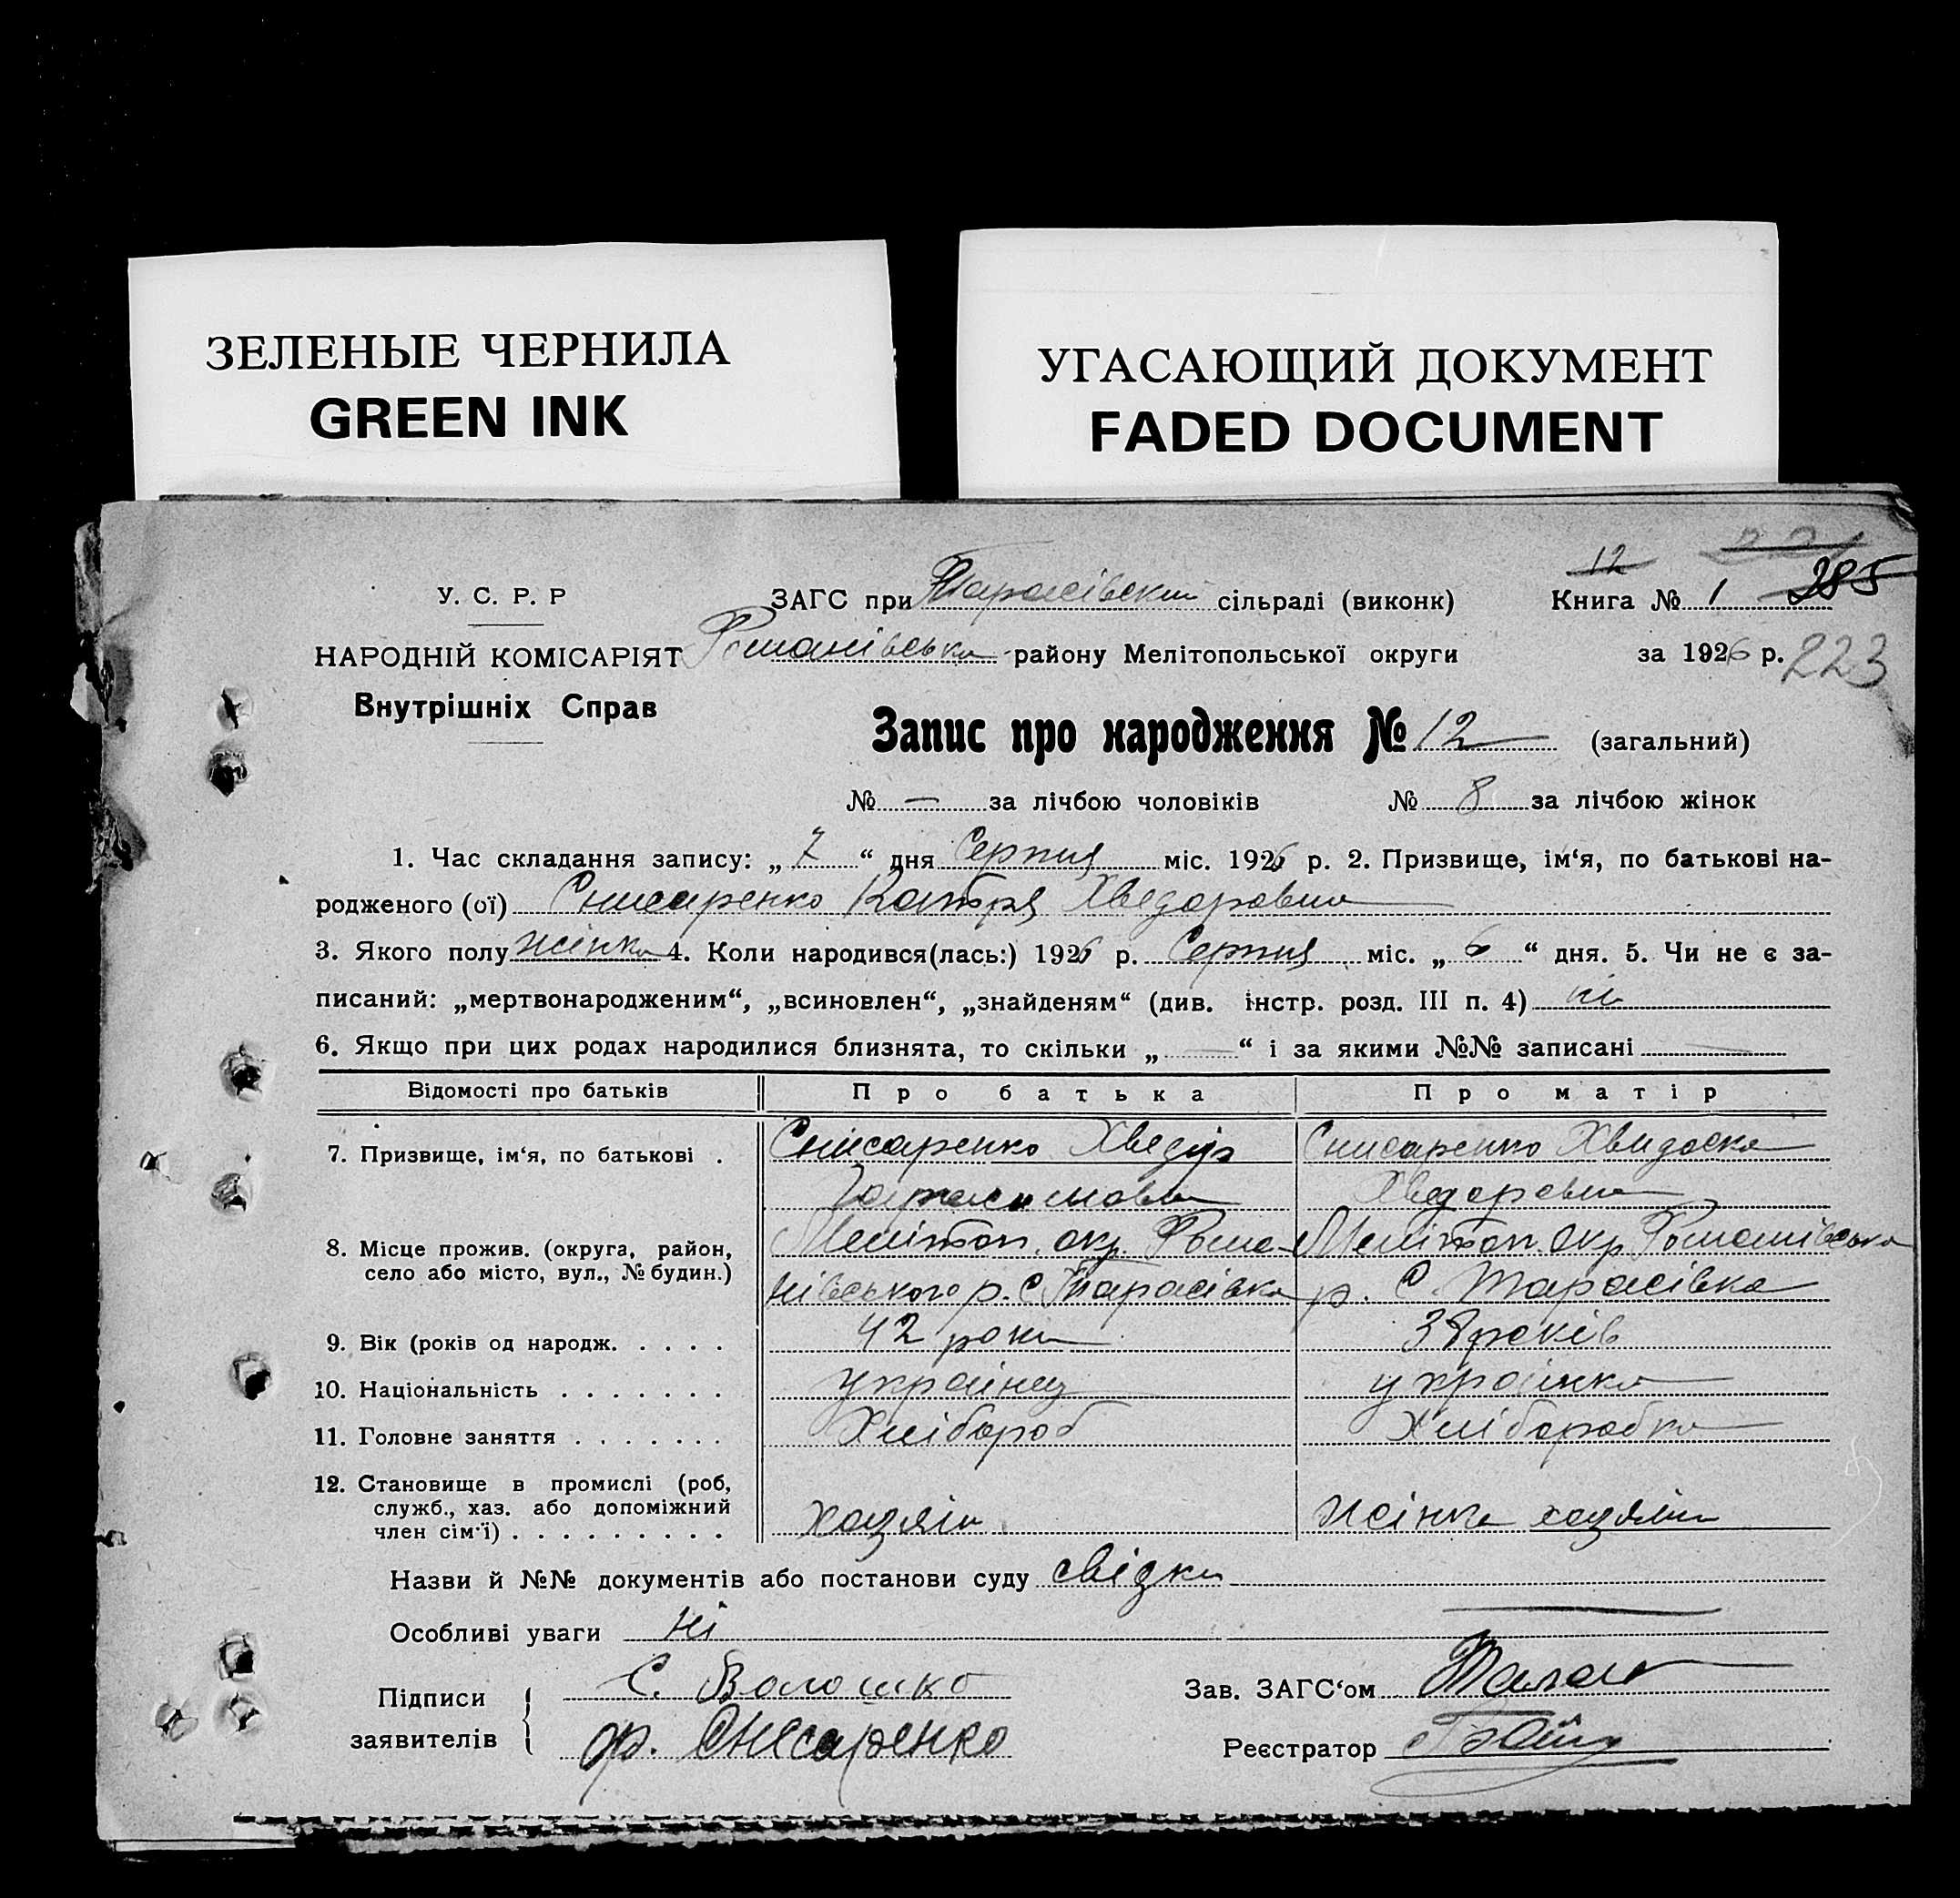 ЗЕЛЕНЫЕ ЧЕРНИЛА
GREEN INK
УГАСАЮЩИЙ ДОКУМЕНТ
FADED DOCUMENT
12
У. С. Р. Р
ЗАГС при Тарасівский сільраді (виконк)
Книга № 1 285
НАРОДНІЙ КОМІСАРІЯТ
Романівська району Мелітопольської округи
за 1926 р. 223
Внутрішніх Справ
Запис про народження № 12 (загальний)
№ — за лічбою чоловіків № 8 за лічбою жінок
1. Час складання запису: „ 7 “ дня Серпня міс. 1926 р. 2. Призвище, ім‘я, по батькові на-
родженого (ої) Снисаренко Катря Хведоровна
3. Якого полу жінка 4. Коли народився(лась:) 1926 р. Серпня міс. „ 6 “ дня. 5. Чи не є за-
писаний: „мертвонародженим“, „всиновлен“, „знайденям“ (див. інстр. розд. III п. 4) ні
6. Якщо при цих родах народилися близнята, то скільки „ — “ і за якими №№ записані —
Відомості про батьків Про батька Про матір
7. Призвище, ім‘я, по батькові . Снисаренко Хведір Снисаренко Хвидоска
Хведоровна
8. Місце прожив. (округа, район, Мелітоп. окр. Рома- Мелітоп. окр Романівська
село або місто, вул., № будин.) нівського р. С. Тарасівка р. С. Тарасівка
9. Вік (років од народж. . . . . 42 роки 38 років
10. Національність . . . . . . . українец українка
11. Головне заняття . . . . . . . Хлібороб Хліборобка
12. Становище в промислі (роб,
служб., хаз. або допоміжний
член сім‘ї) . . . . . . . . . хазяін Жінка хазяіна
Назви й №№ документів або постанови суду свідки
Особливі уваги ні
Підписи
заявителів
С. Волошко
Зав. ЗАГС‘ом
ф. Снісаренко
Реєстратор